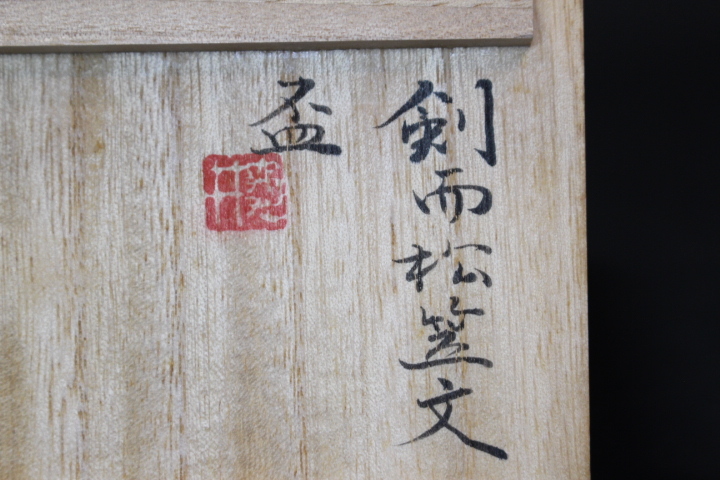 剣而松笠文
盃